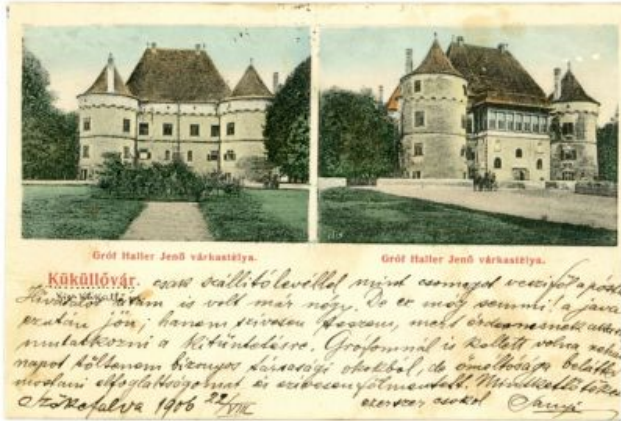 Gróf Haller Jenő várkastélya.
Gróf Haller Jenő várkastélya.
Küküllővár. csak szállitólevéllel mint csomagot veszi föl a posta
Hivatalos utam is volt már négy. De ez még semmi! a java
ezután jön; hanem szivesen teszem, mert érdemesnek akarok
mutatkozni a kitüntetésre. Grófomnál is kellett volna néhány
napot töltenem bizonyos társasági okokból, de őméltósága belátta
mostani elfoglaltságomat és szivesen fölmentett. Mindkettőtöket
Szőkefalva 1906 22/VIII ezerszer csókol Sanyi